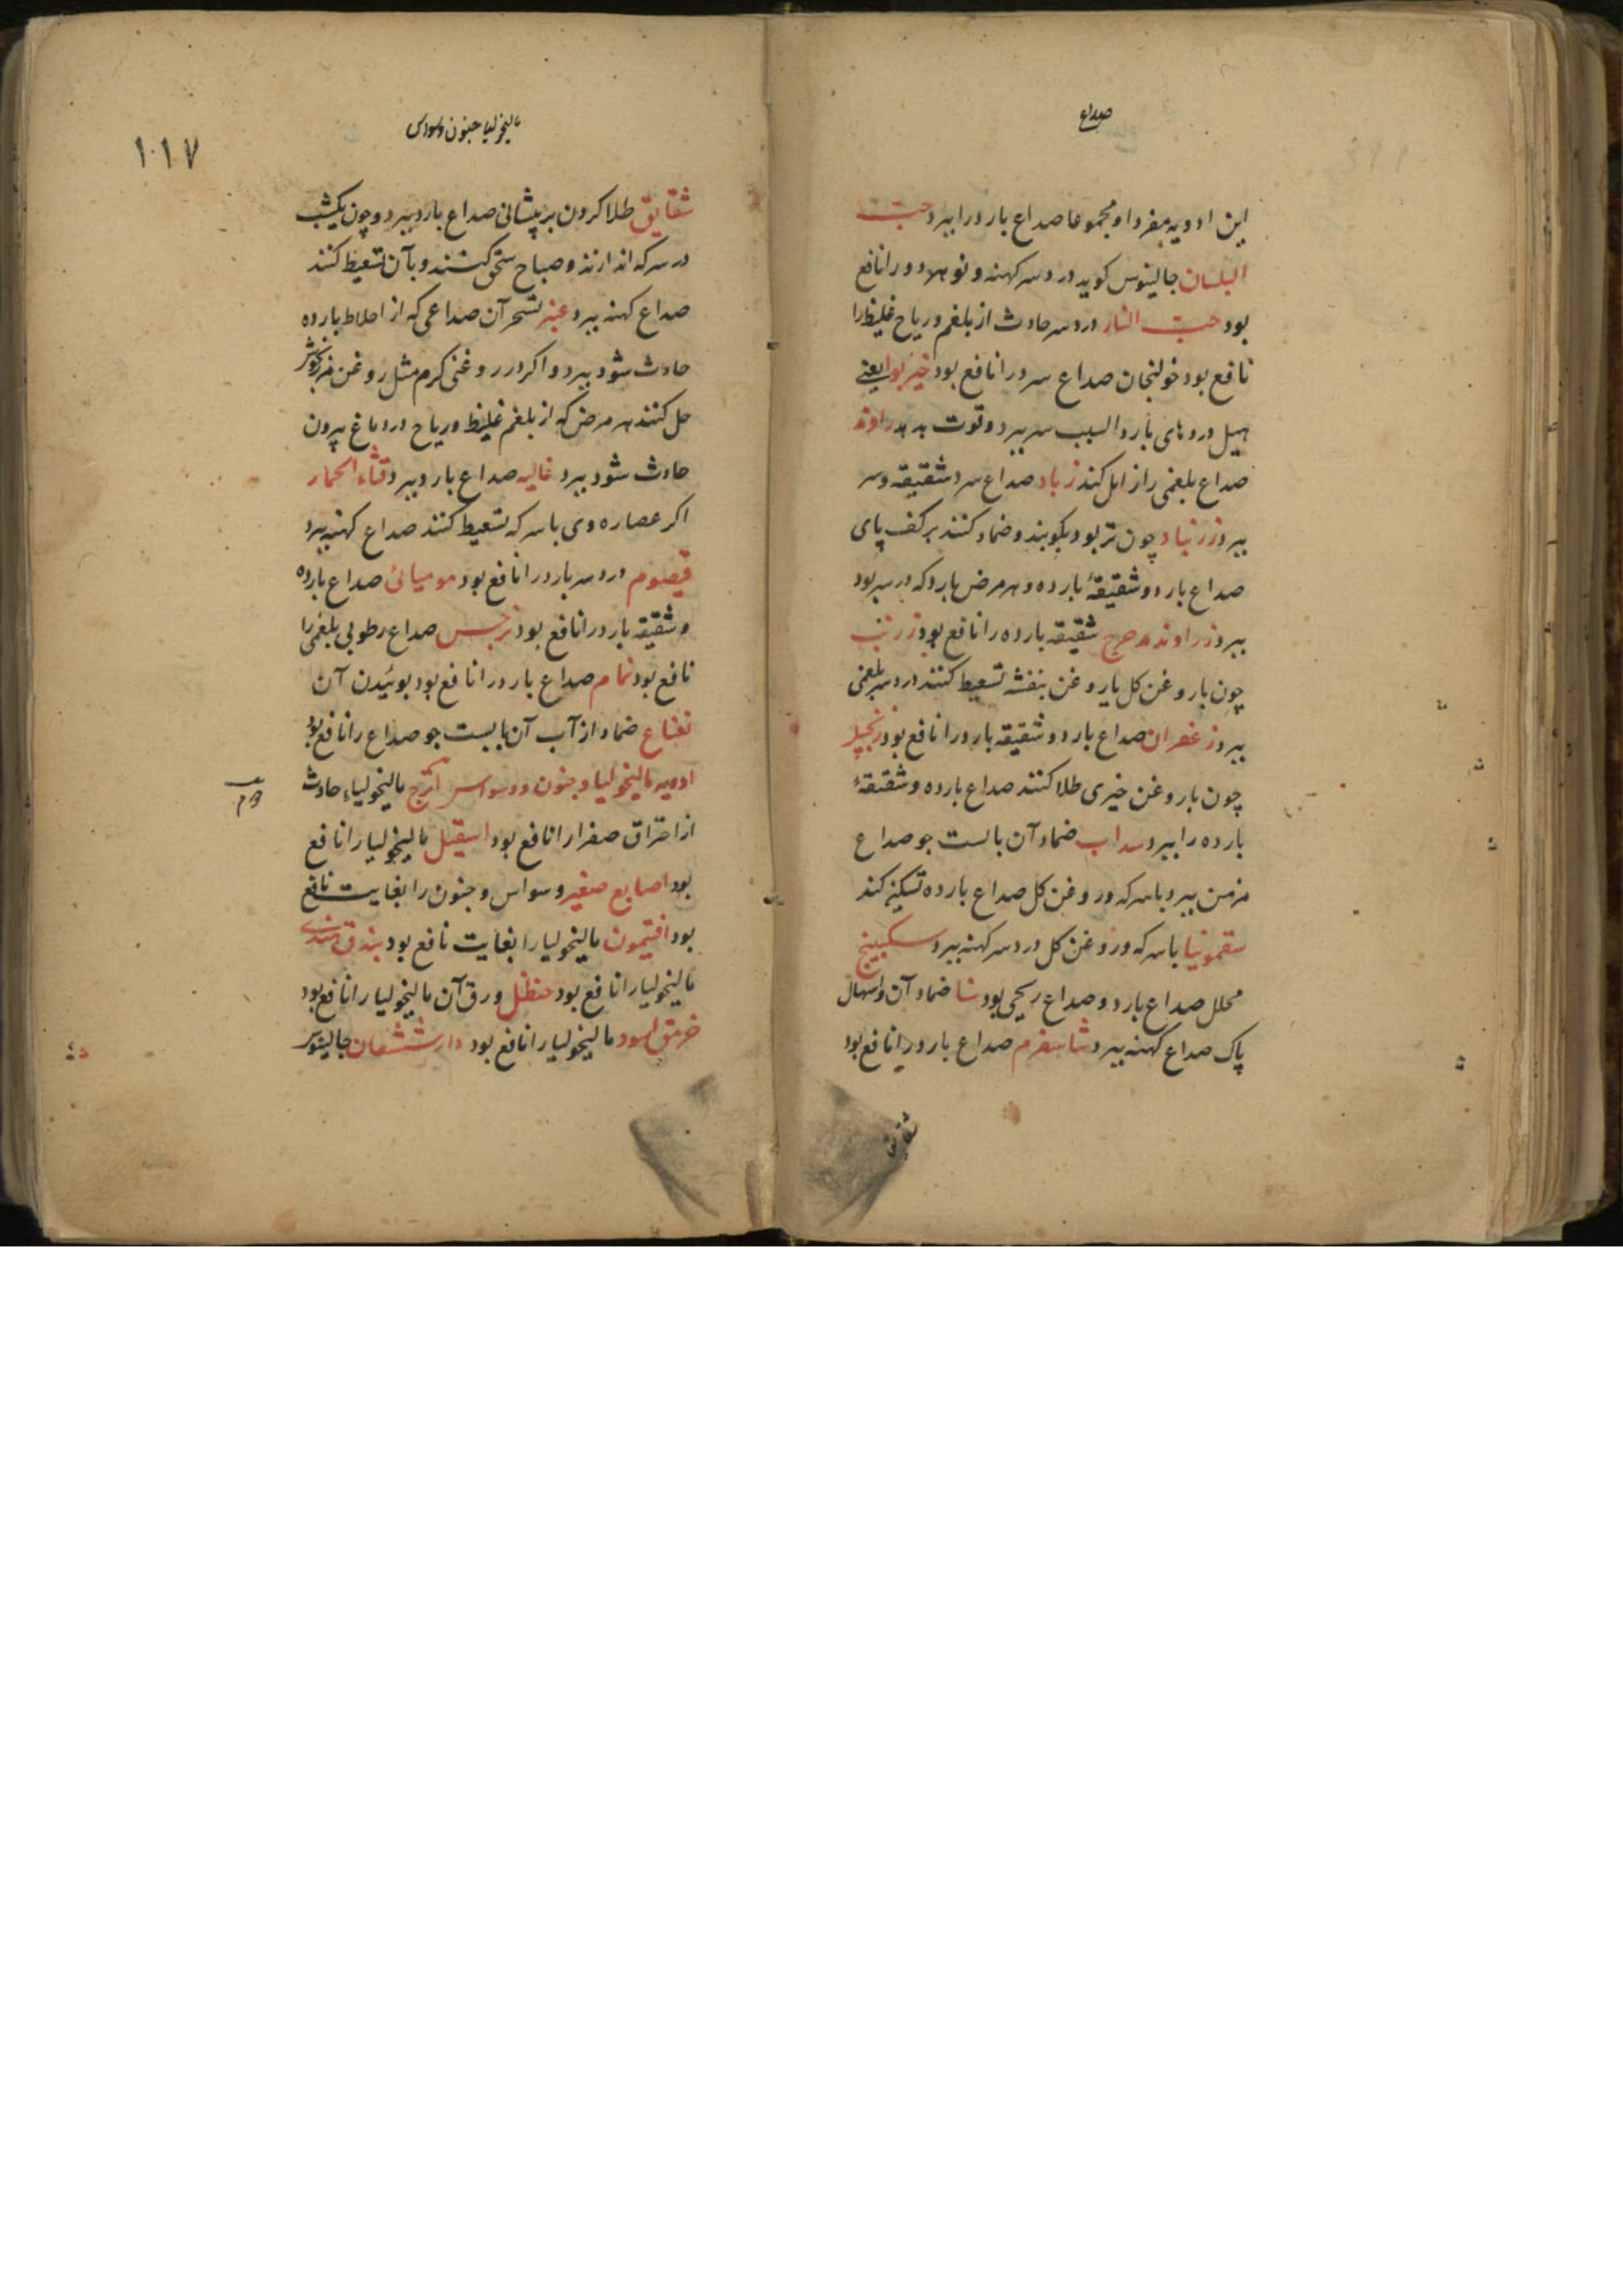 صداع
این ادویه مفردا و مجموعا صداع بارد را ببرد حبّ
البلسان جالینوس کوید درد سر کهنه و نو هر دو را نافع
بود حبّ النار درد سر حادث از بلغم و ریاح غلیظ را
نافع بود خولنجان صداع سرد را نافع بود خیربوا یعنے
هیل دردهای بارد السبب سر ببرد و قوت بدهد راوند
صداع بلغمی را زایل کند زباد صداع سرد شقیقه و سر
ببرد زرنباد چون تر بود بکوبند و ضماد کنند بر کف پای
صداع بارد و شقیقهٔ بارده و هر مرض بارد که در سر بود
ببرد زراوند مدحرج شقیقه بارده را نافع بود زرنب
چون با روغن کل یا روغن بنفشه تسعیط کنند درد سر بلغمی
ببرد زعفران صداع بارد و شقیقه بارد را نافع بود زنجبیل
چون با روغن خیری طلا کنند صداع بارده و شقیقهٔ
بارده را ببرد سداب ضماد آن با لست جو صداع
مزمن ببرد با سرکه و روغن کل صداع بارده تسکین کند
سقمونیا با سرکه و روغن کل درد سر کهنه ببرد سکبینج
محلل صداع بارد و صداع ریحی بود سنا ضماد آن و اسهال
پاک صداع کهنه ببرد شاسفرم صداع بارد را نافع بود
شقایق
مالیخولیا جنون وسواس
۱۰۱۷
شقایق طلا کردن بر پیشانی صداع بارد ببرد و چون یکشب
در سرکه اندازند و صباح سحق کنند و بآن تسعیط کنند
صداع کهنه ببرد عنبر تبخر آن صداعی که از اخلاط بارده
حادث شود ببرد و اکر در روغنی کرم مثل روغن مرزنکوش
حل کنند هر مرض که از بلغم غلیظ و ریاح در دماغ بیرون
حادث شود ببرد غالیه صداع بارد ببرد قثاء الحمار
اکر عصاره وی با سرکه تسعیط کنند صداع کهنه ببرد
قیصوم درد سر بارد را نافع بود مومیائی صداع بارده
و شقیقه بارد را نافع بود نرجس صداع رطوبی بلغمی را
نافع بود نمام صداع بارد را نافع بود بوئیدن آن
نعناع ضماد از آب آن با لست جو صداع را نافع بود
ادویه مالیخولیا و جنون و وسواس اترج مالیخولیاء حادث
از احتراق صفرا را نافع بود اسقیل مالیخولیا را نافع
بود اصابع صغیر وسواس و جنون را بغایت نافع
بود افتیمون مالیخولیا را بغایت نافع بود بندق هندی
مالیخولیا را نافع بود حنظل ورق آن مالیخولیا را نافع بود
خربق اسود مالیخولیا را نافع بود دارششعان جالینوس